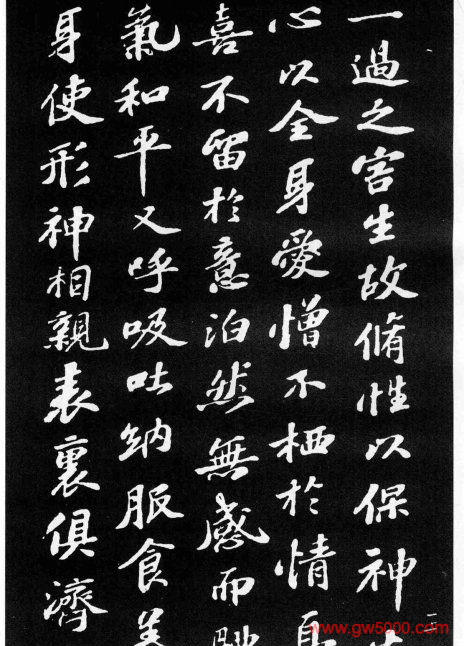 一過之害生故脩性以保神
心以全身愛憎不栖於情
喜不留於意泊然無感而
氣和平又呼吸吐納服食養
身使形神相親表裏俱濟
www.gw5000.com